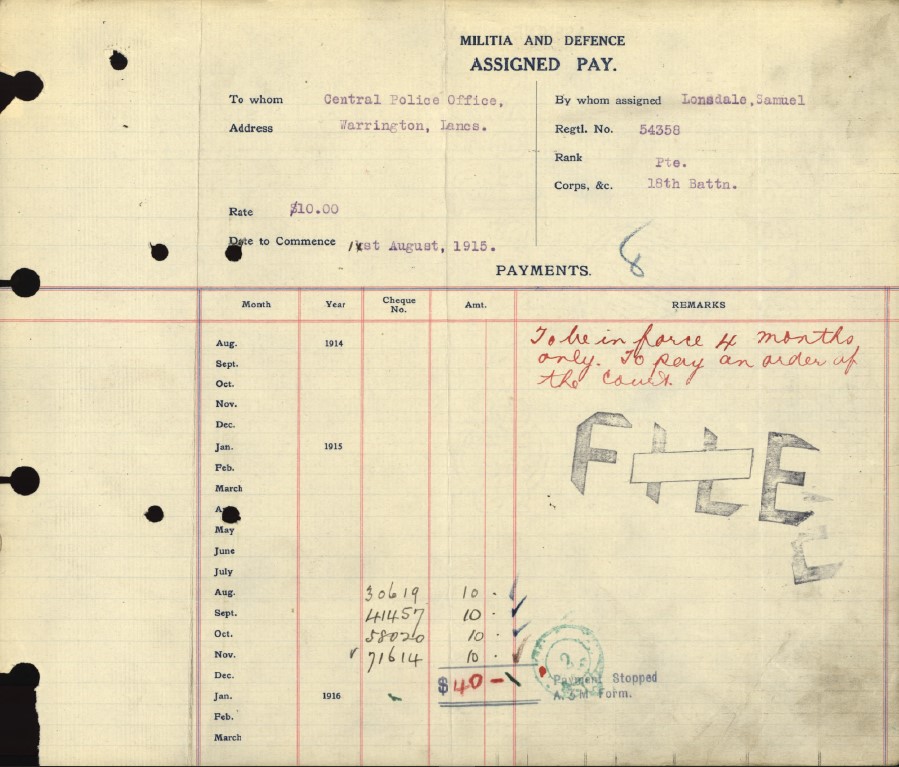 MILITIA AND DEFENCE
ASSIGNED PAY.
To whom Central Police Office,
Address Warrington, Lancs.
By whom assigned Lonsdale, Samuel
Regtl. No. 54358
Rank Pte.
Corps, &c. 18th Battn.
Rate $10.00
Date to Commence 1st August, 1915.
8
PAYMENTS.
Month Year Cheque No. Amt. REMARKS
To be in force 4 months
only. To pay an order of
the court.
Aug. 1914
Sept.
Oct.
Nov.
Dec.
Jan. 1915
Feb.
March
May
June
July
Aug. 30619 10 .
Sept. 41457 10 .
Oct. 58020 10 .
Nov. 71614 10 .
Dec. $ 40 -
Jan. 1916
Feb.
March
FILE
L
2
Payment Stopped
Form.